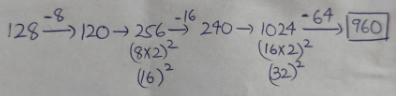 128 -8→ 120 → 256 -16→ 240 → 1024 -64→ 960
(8×2)² (16×2)²
(16)² (32)²